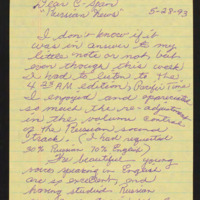 Dear C-Span
"Russian News"
5-28-93
I don't know if it
was in answer to my
little note or not but
even though this week
I had to listen to the
4:30 AM edition (Pacific Time)
I enjoyed and appreciated
so much the re-adjustment
in the volume control
of the Russian sound
track. (I had requested
30% Russian 70% English)
The beautiful young
voices speaking in English
are so excellent, and
having studied Russian